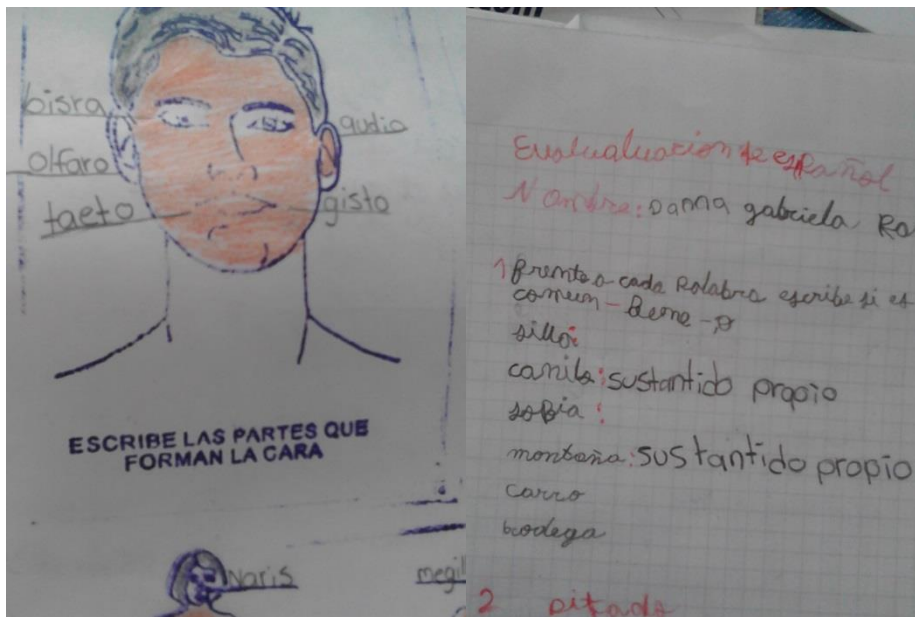 bisra
audio
olfaro
taeto
gisto
ESCRIBE LAS PARTES QUE
FORMAN LA CARA
Naris
megil
Evalualuacion de español
Nombre: Danna gabriela Ro
1 frente a cada palabra escribe si es
comun -
silla:
camila: sustantido propio
sofia:
montaña: sustantido propio
carro
bodega
2 Ditado